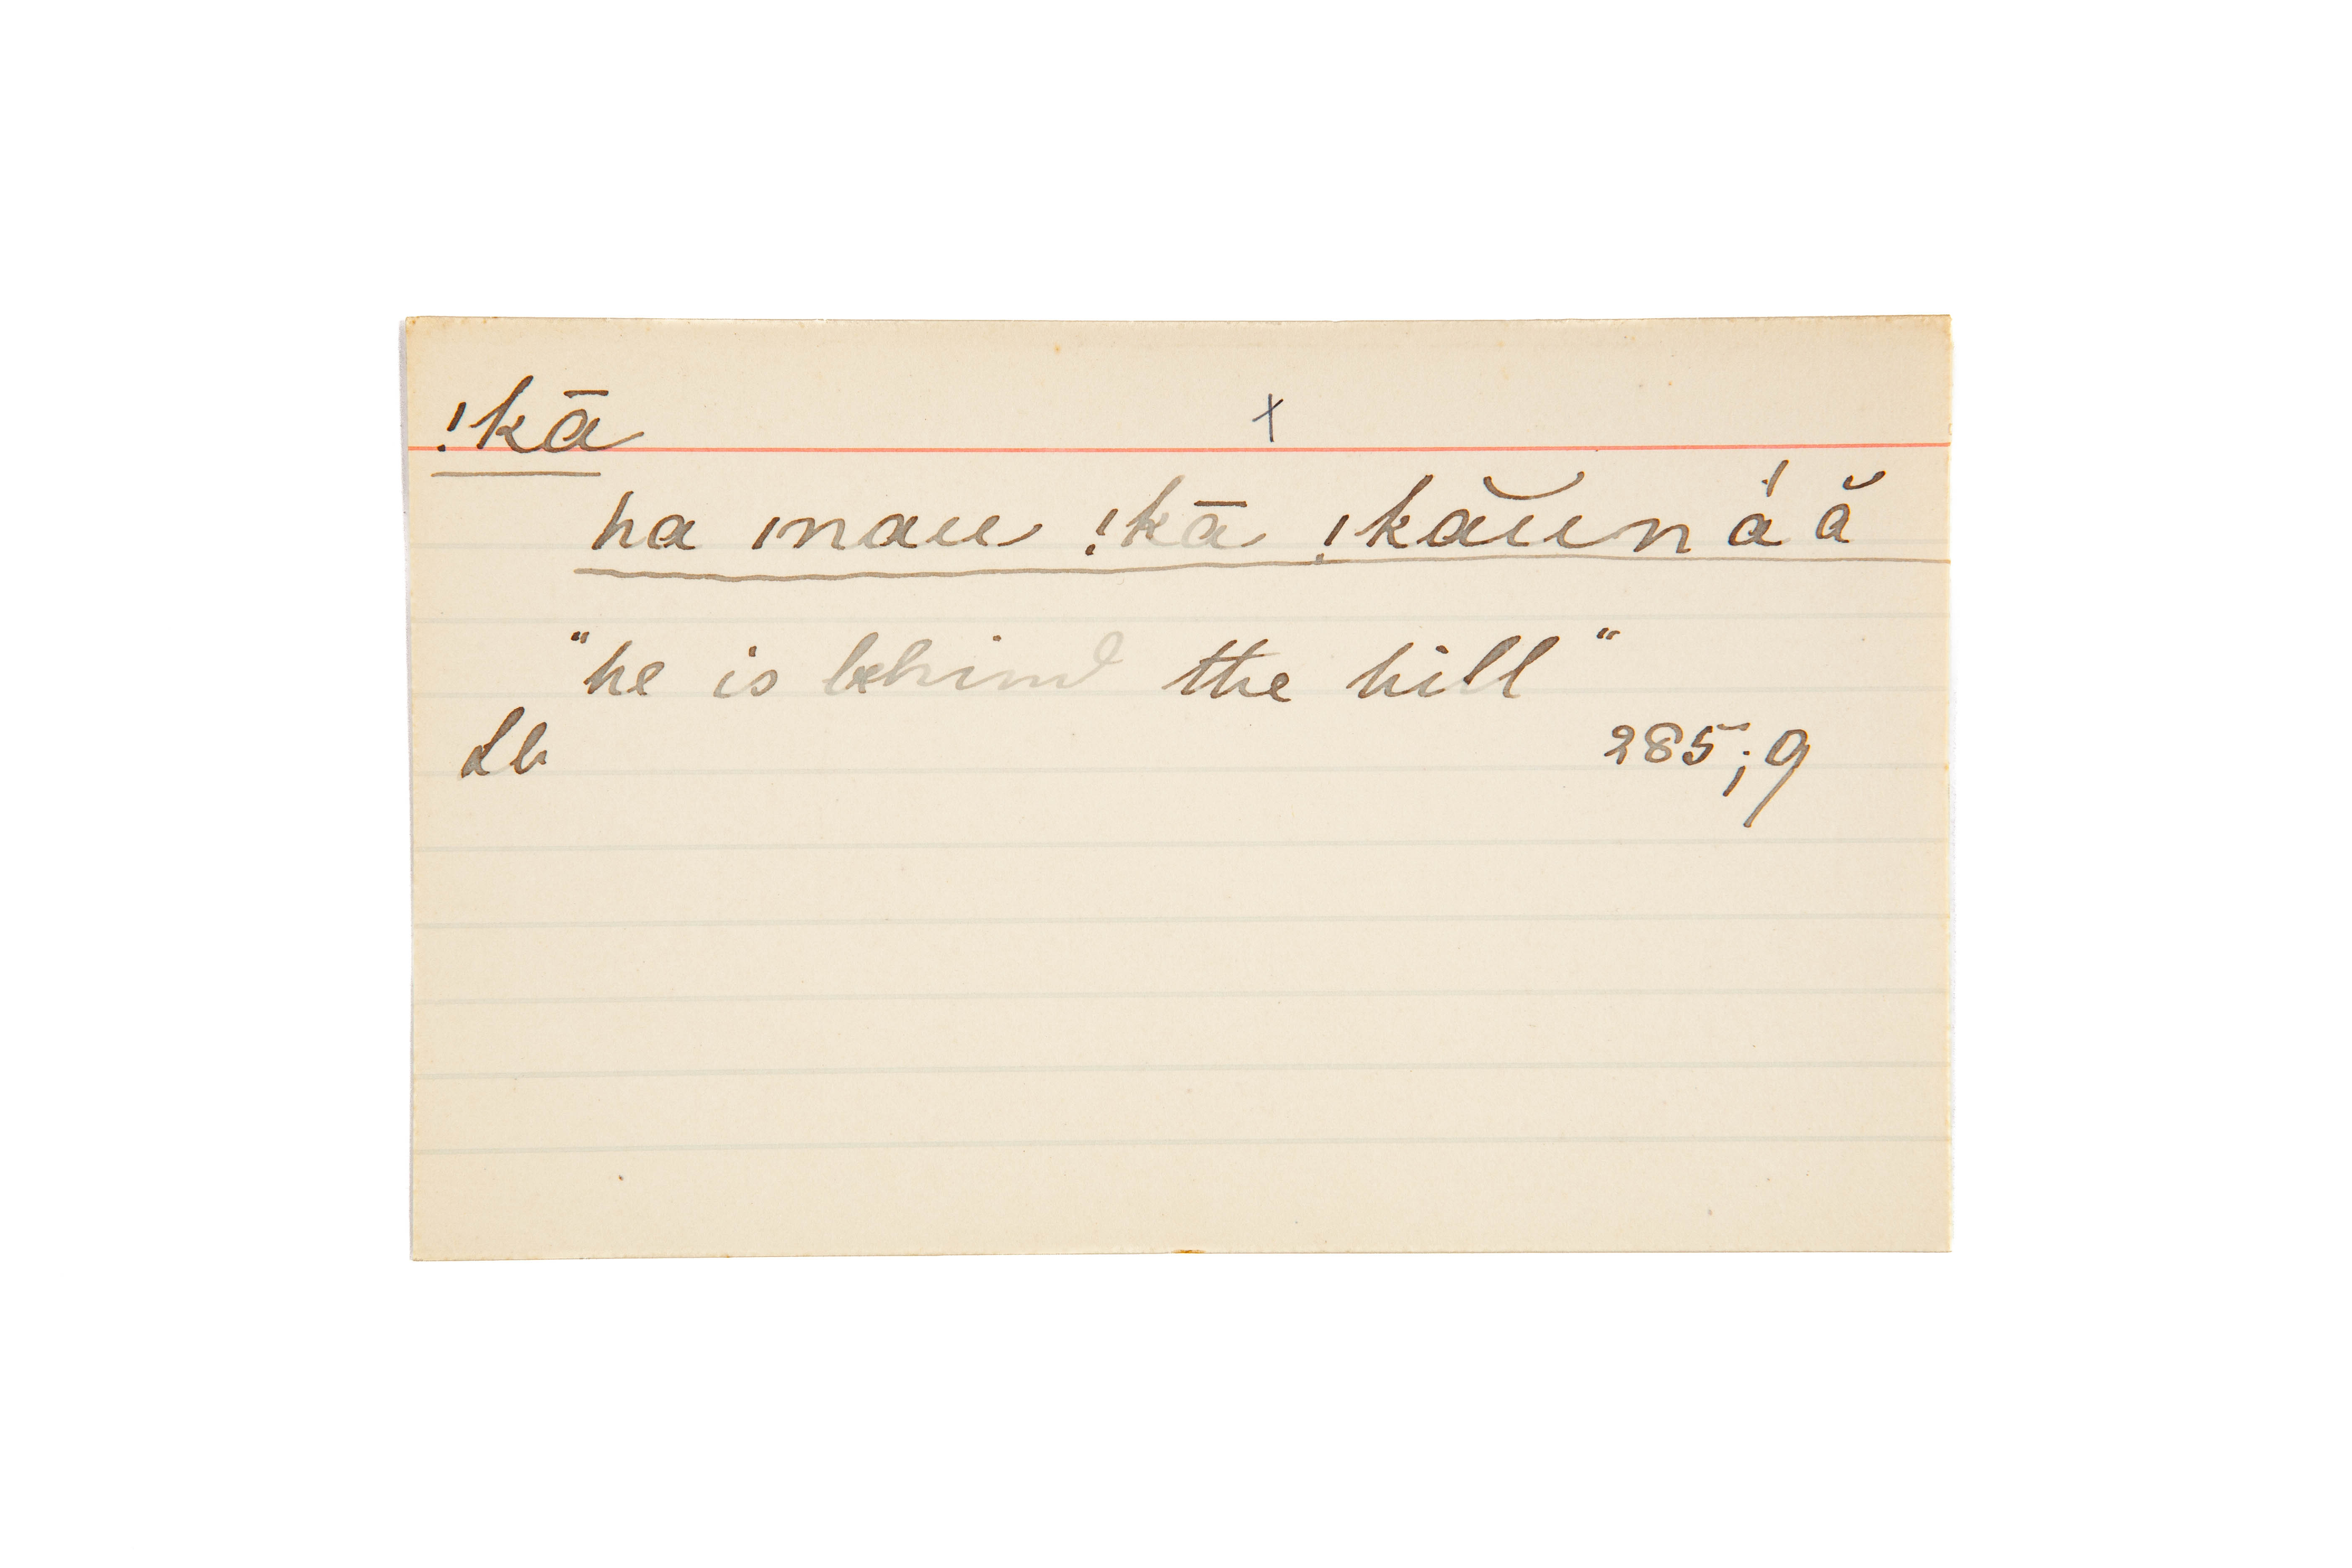 !kā
x
ha ınau !kā !kăŭn á ă
"he is behind the hill"
Lb 285;9